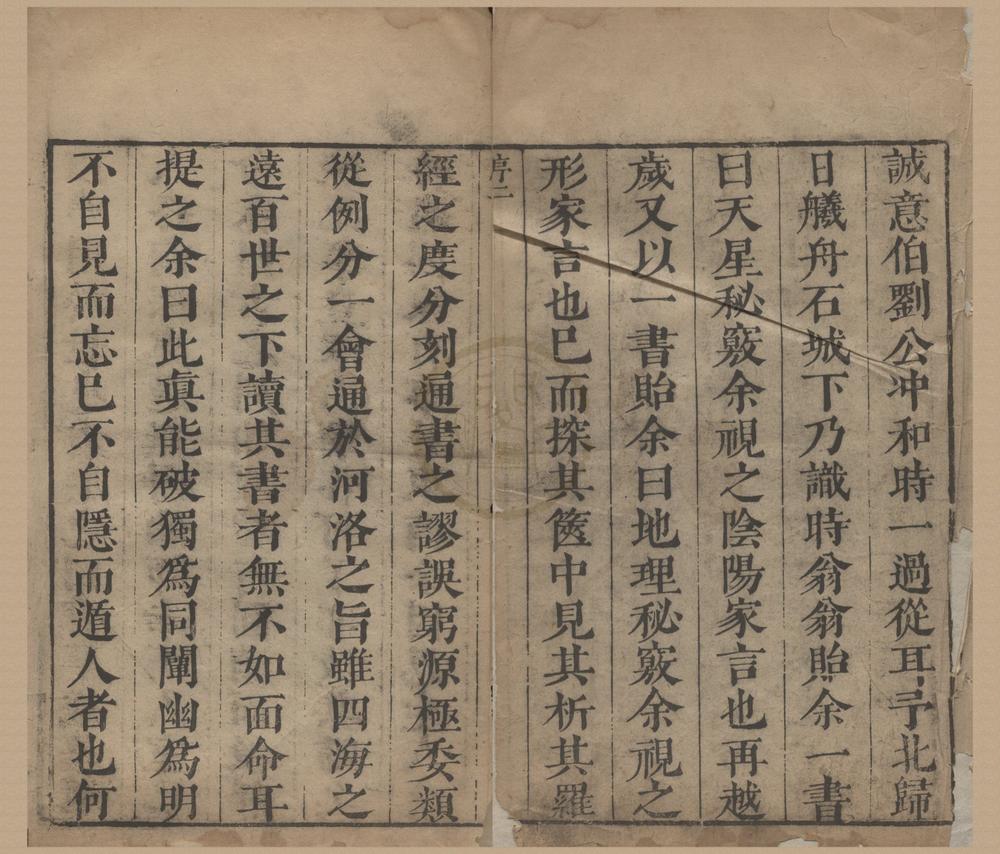 誠意伯劉公冲和時一過從耳予北歸
日艤舟石城下乃識時翁翁貽余一書
曰天星秘竅余視之陰陽家言也再越
歲又以一書貽余曰地理秘竅余視之
形家言也巳而探其篋中見其析其羅
序二
經之度分刻通書之謬誤窮源極委類
從例分一會通於河洛之旨雖四海之
遠百世之下讀其書者無不如面命耳
提之余曰此眞能破獨爲同闡幽爲明
不自見而忘巳不自隱而遁人者也何